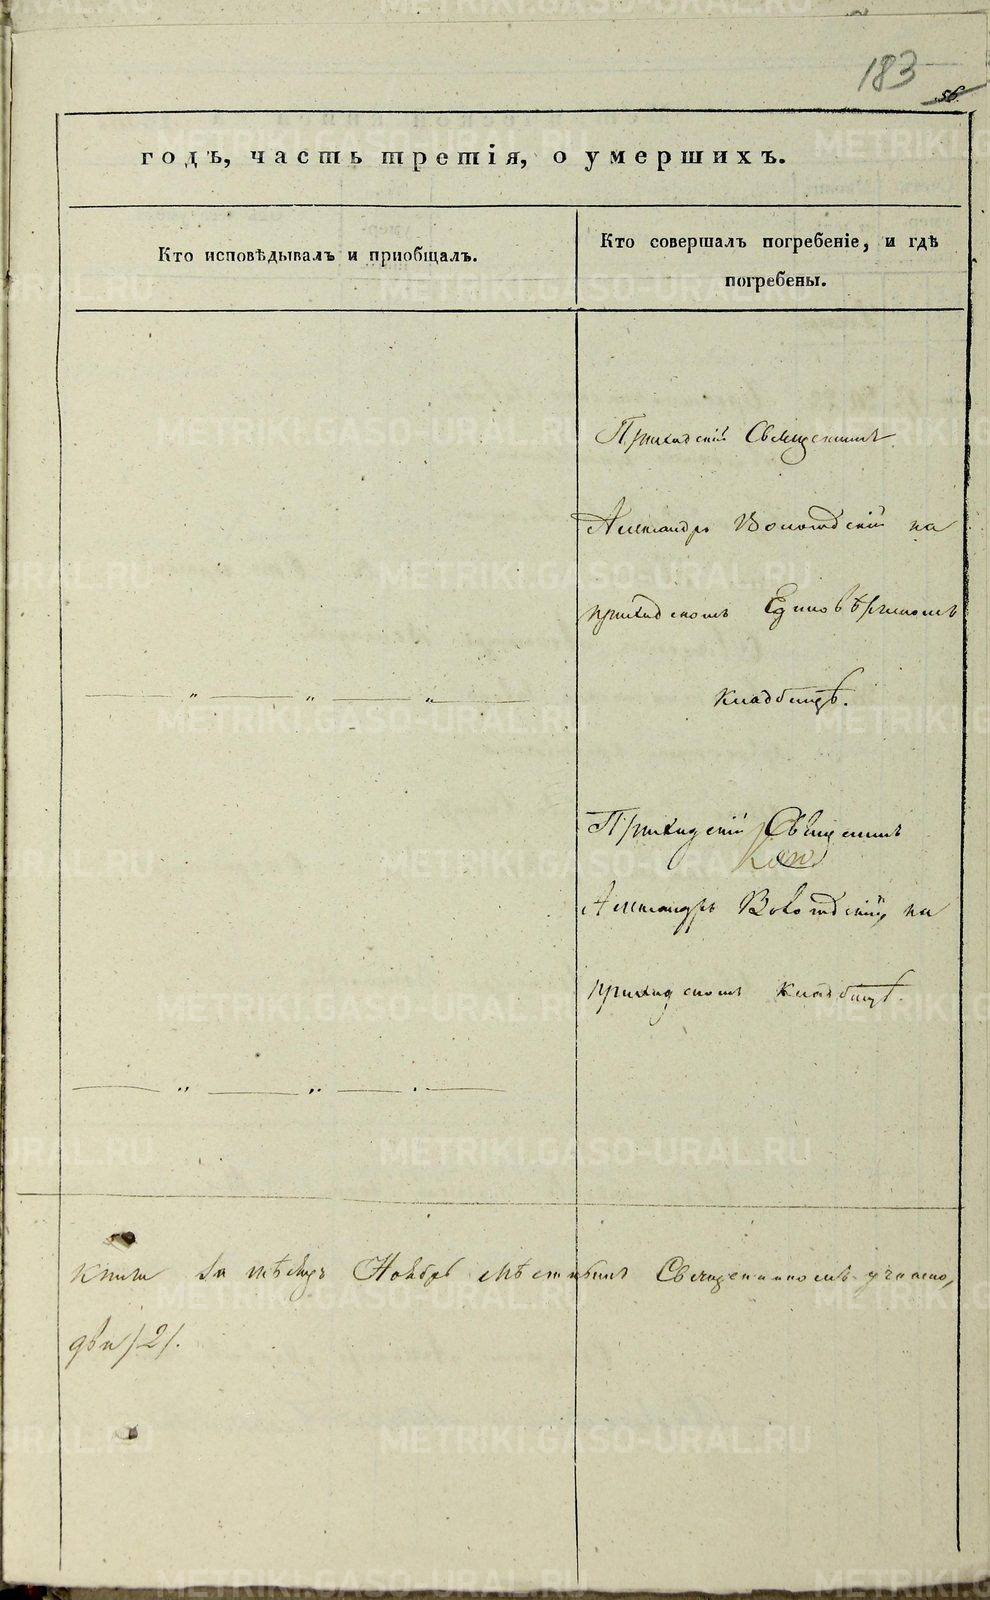 183
56.
годъ, часть третія, о умершихъ.
Кто исповѣдывалъ и пріобщалъ.
Кто совершалъ погребеніе, и гдѣ
погребены.
Приходскій Священникъ
Александръ Вологодскій на
приходскомъ Единовѣрческомъ
кладбищѣ.
Приходскій Священникъ
Александръ Вологодскій, на
приходскомъ кладбищѣ.
книги за мѣсяцъ Ноябрь мѣстнымъ Священникомъ
два /2/.
METRIKI.GASO-URAL.RU